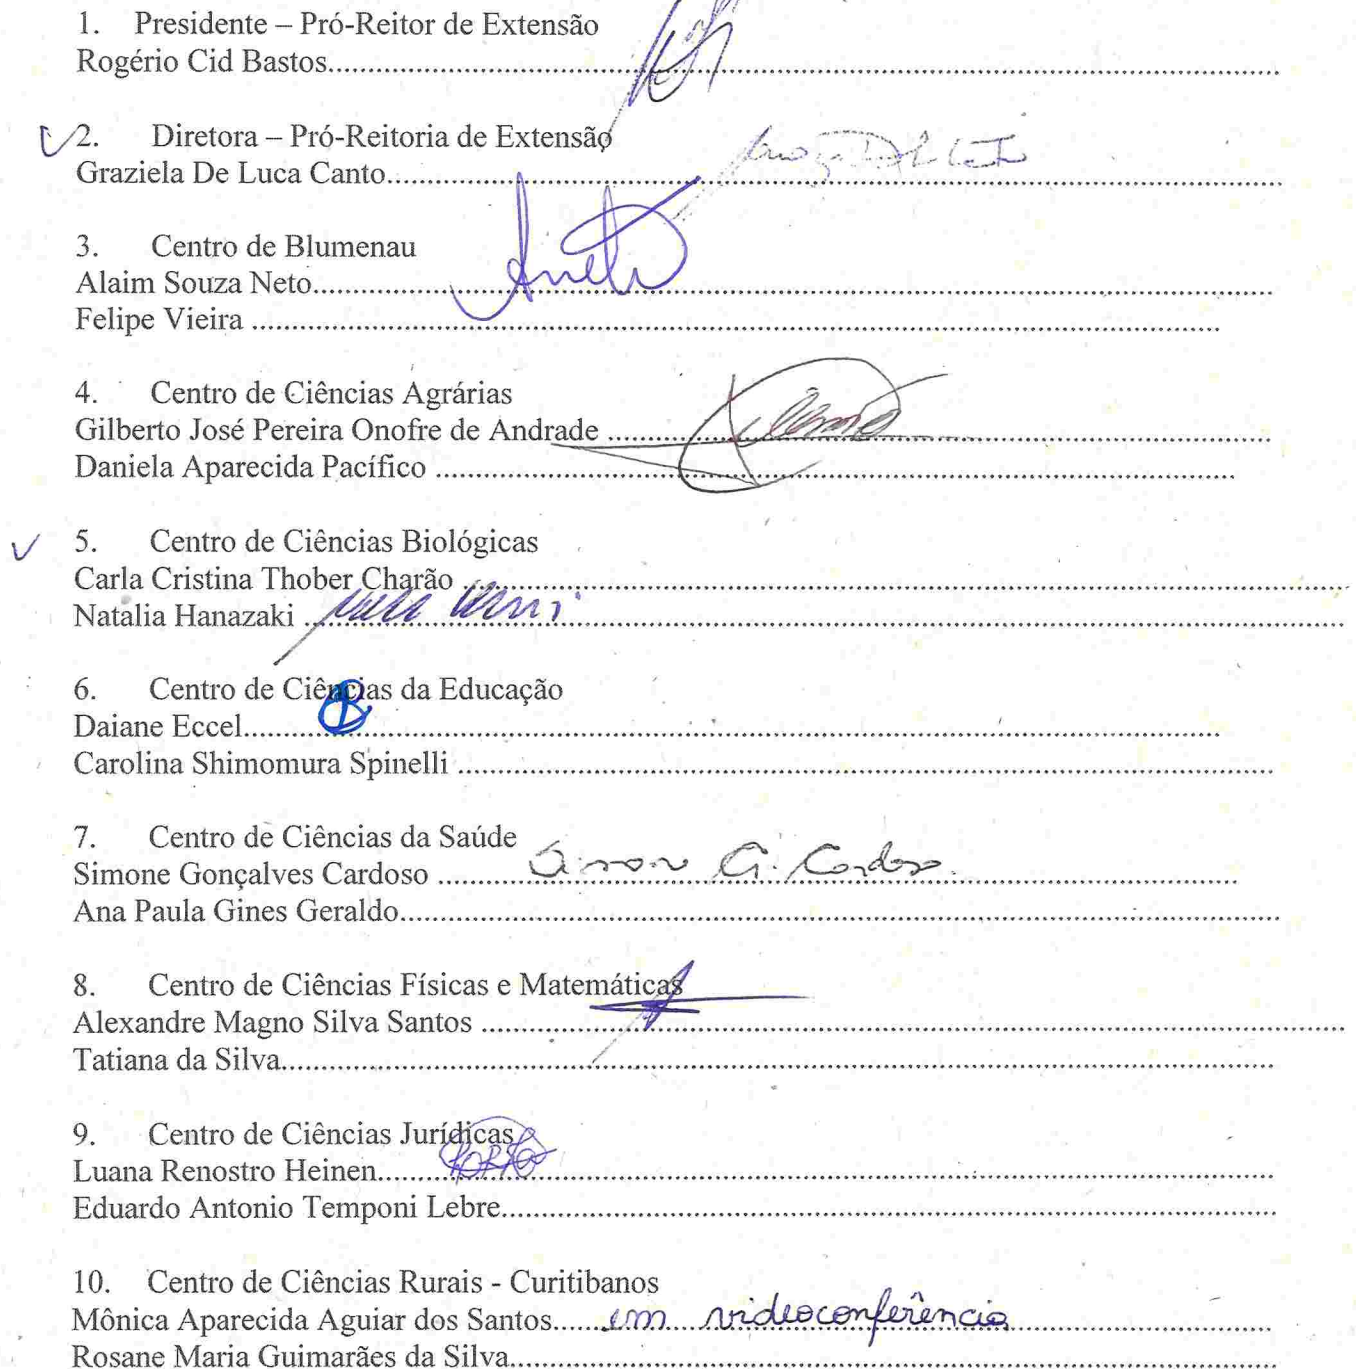 1. Presidente – Pró-Reitor de Extensão
Rogério Cid Bastos..........
2. Diretora – Pró-Reitoria de Extensão
Graziela De Luca Canto..........
3. Centro de Blumenau
Alaim Souza Neto..........
Felipe Vieira ..........
4. Centro de Ciências Agrárias
Gilberto José Pereira Onofre de Andrade ..........
Daniela Aparecida Pacífico ..........
5. Centro de Ciências Biológicas
Carla Cristina Thober Charão ..........
Natalia Hanazaki ..........
6. Centro de Ciências da Educação
Daiane Eccel..........
Carolina Shimomura Spinelli ..........
7. Centro de Ciências da Saúde
Simone Gonçalves Cardoso .......... Simone G. Cardoso
Ana Paula Gines Geraldo..........
8. Centro de Ciências Físicas e Matemáticas
Alexandre Magno Silva Santos ..........
Tatiana da Silva..........
9. Centro de Ciências Jurídicas
Luana Renostro Heinen..........
Eduardo Antonio Temponi Lebre..........
10. Centro de Ciências Rurais - Curitibanos
Mônica Aparecida Aguiar dos Santos.......em videoconferência..........
Rosane Maria Guimarães da Silva..........